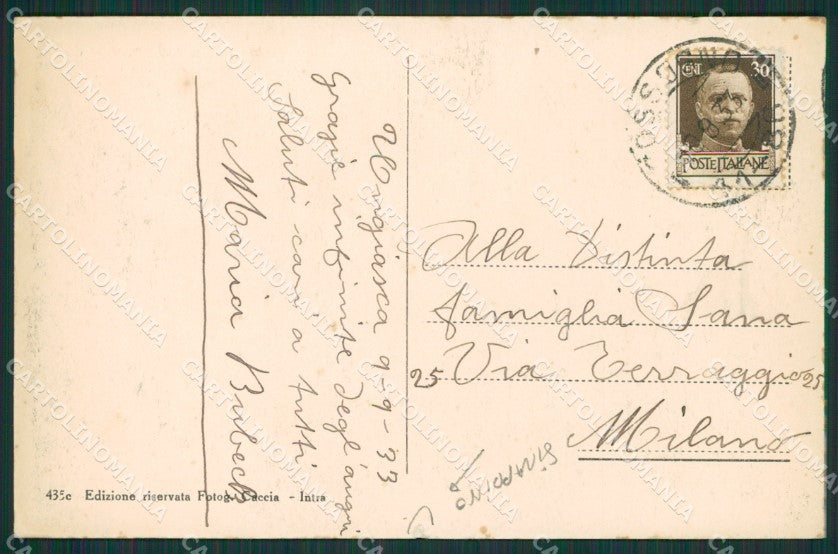 Ungiasca 9-9-33
Grazie infinite degl'auguri
Saluti cari a tutti
Maria Bubeck
CENT. 30
POSTE ITALIANE
Alla Distinta
famiglia Sana
25 Via Terraggio 25
Milano
435c Edizione riservata Fotog. Caccia - Intra
CARTOLINOMANIA